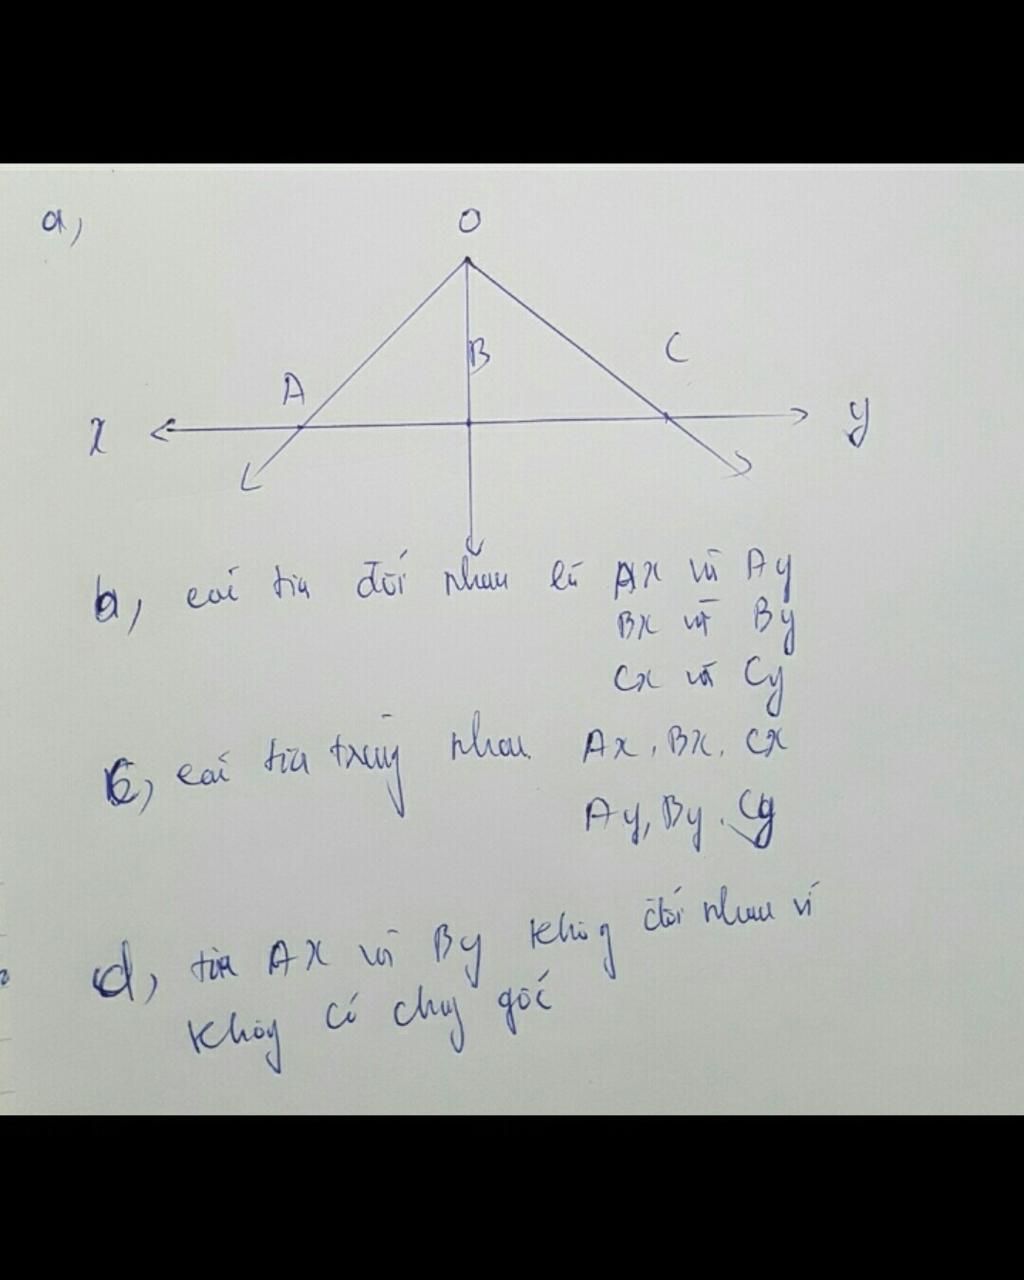 a,
O
B
C
A
x
y
b, các tia đối nhau là Ax và Ay
Bx và By
Cx và Cy
c, các tia trùng nhau. Ax, Bx, Cx
Ay, By, Cy
d, tia Ax và By không đối nhau vì
không có chung gốc